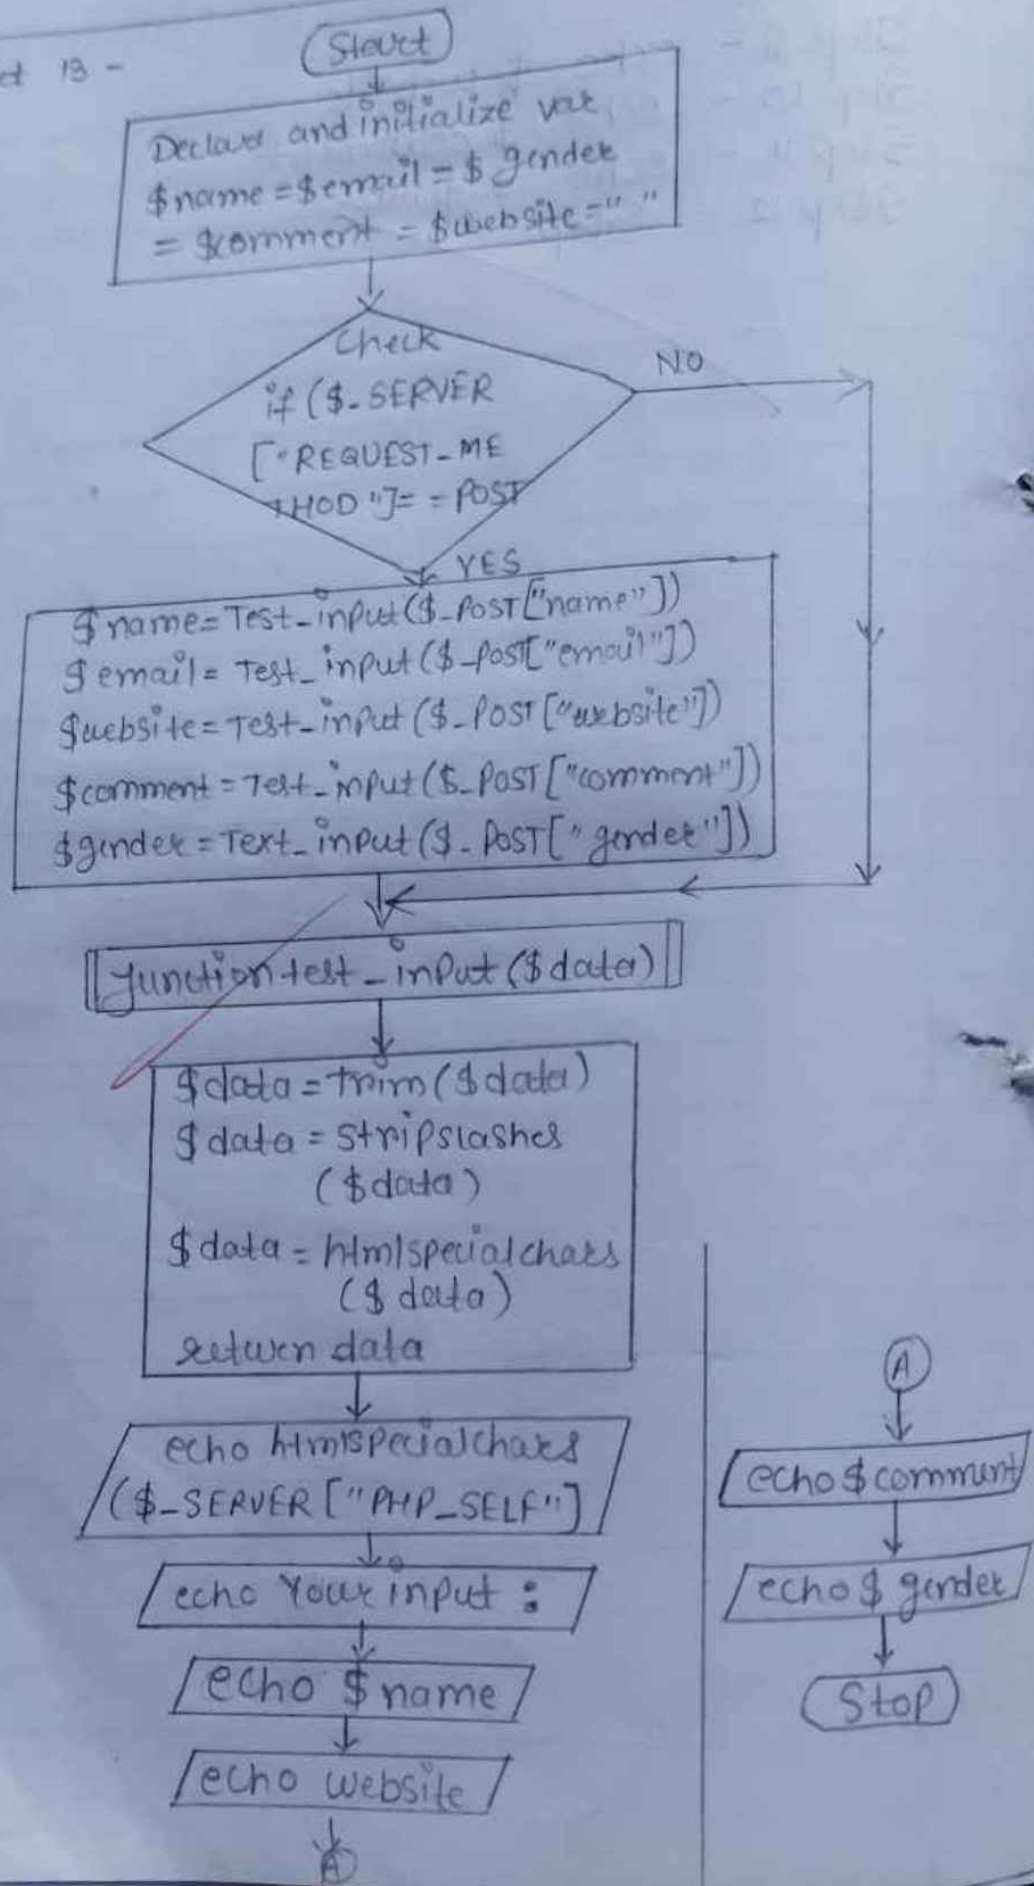 13 -
Start
Declare and initialize var
$name = $email = $ gender
= $comment = $website = " "
Check
if ($_SERVER
["REQUEST_ME
THOD"]= = POST
NO
YES
$name= Test_input($_POST["name"])
$email = Test_input($_POST["email"])
$website = Test_input($_POST["website"])
$comment = Test_input($_POST["comment"])
$gender = Text_input($_POST["gender"])
function test_input($data)
$data = trim($data)
$data = stripslashes
($data)
$data = htmlspecialchars
($data)
return data
echo htmlspecialchars
($_SERVER["PHP_SELF"]
echo Your input :
echo $name
echo website
A
A
echo $comment
echo $ gender
Stop